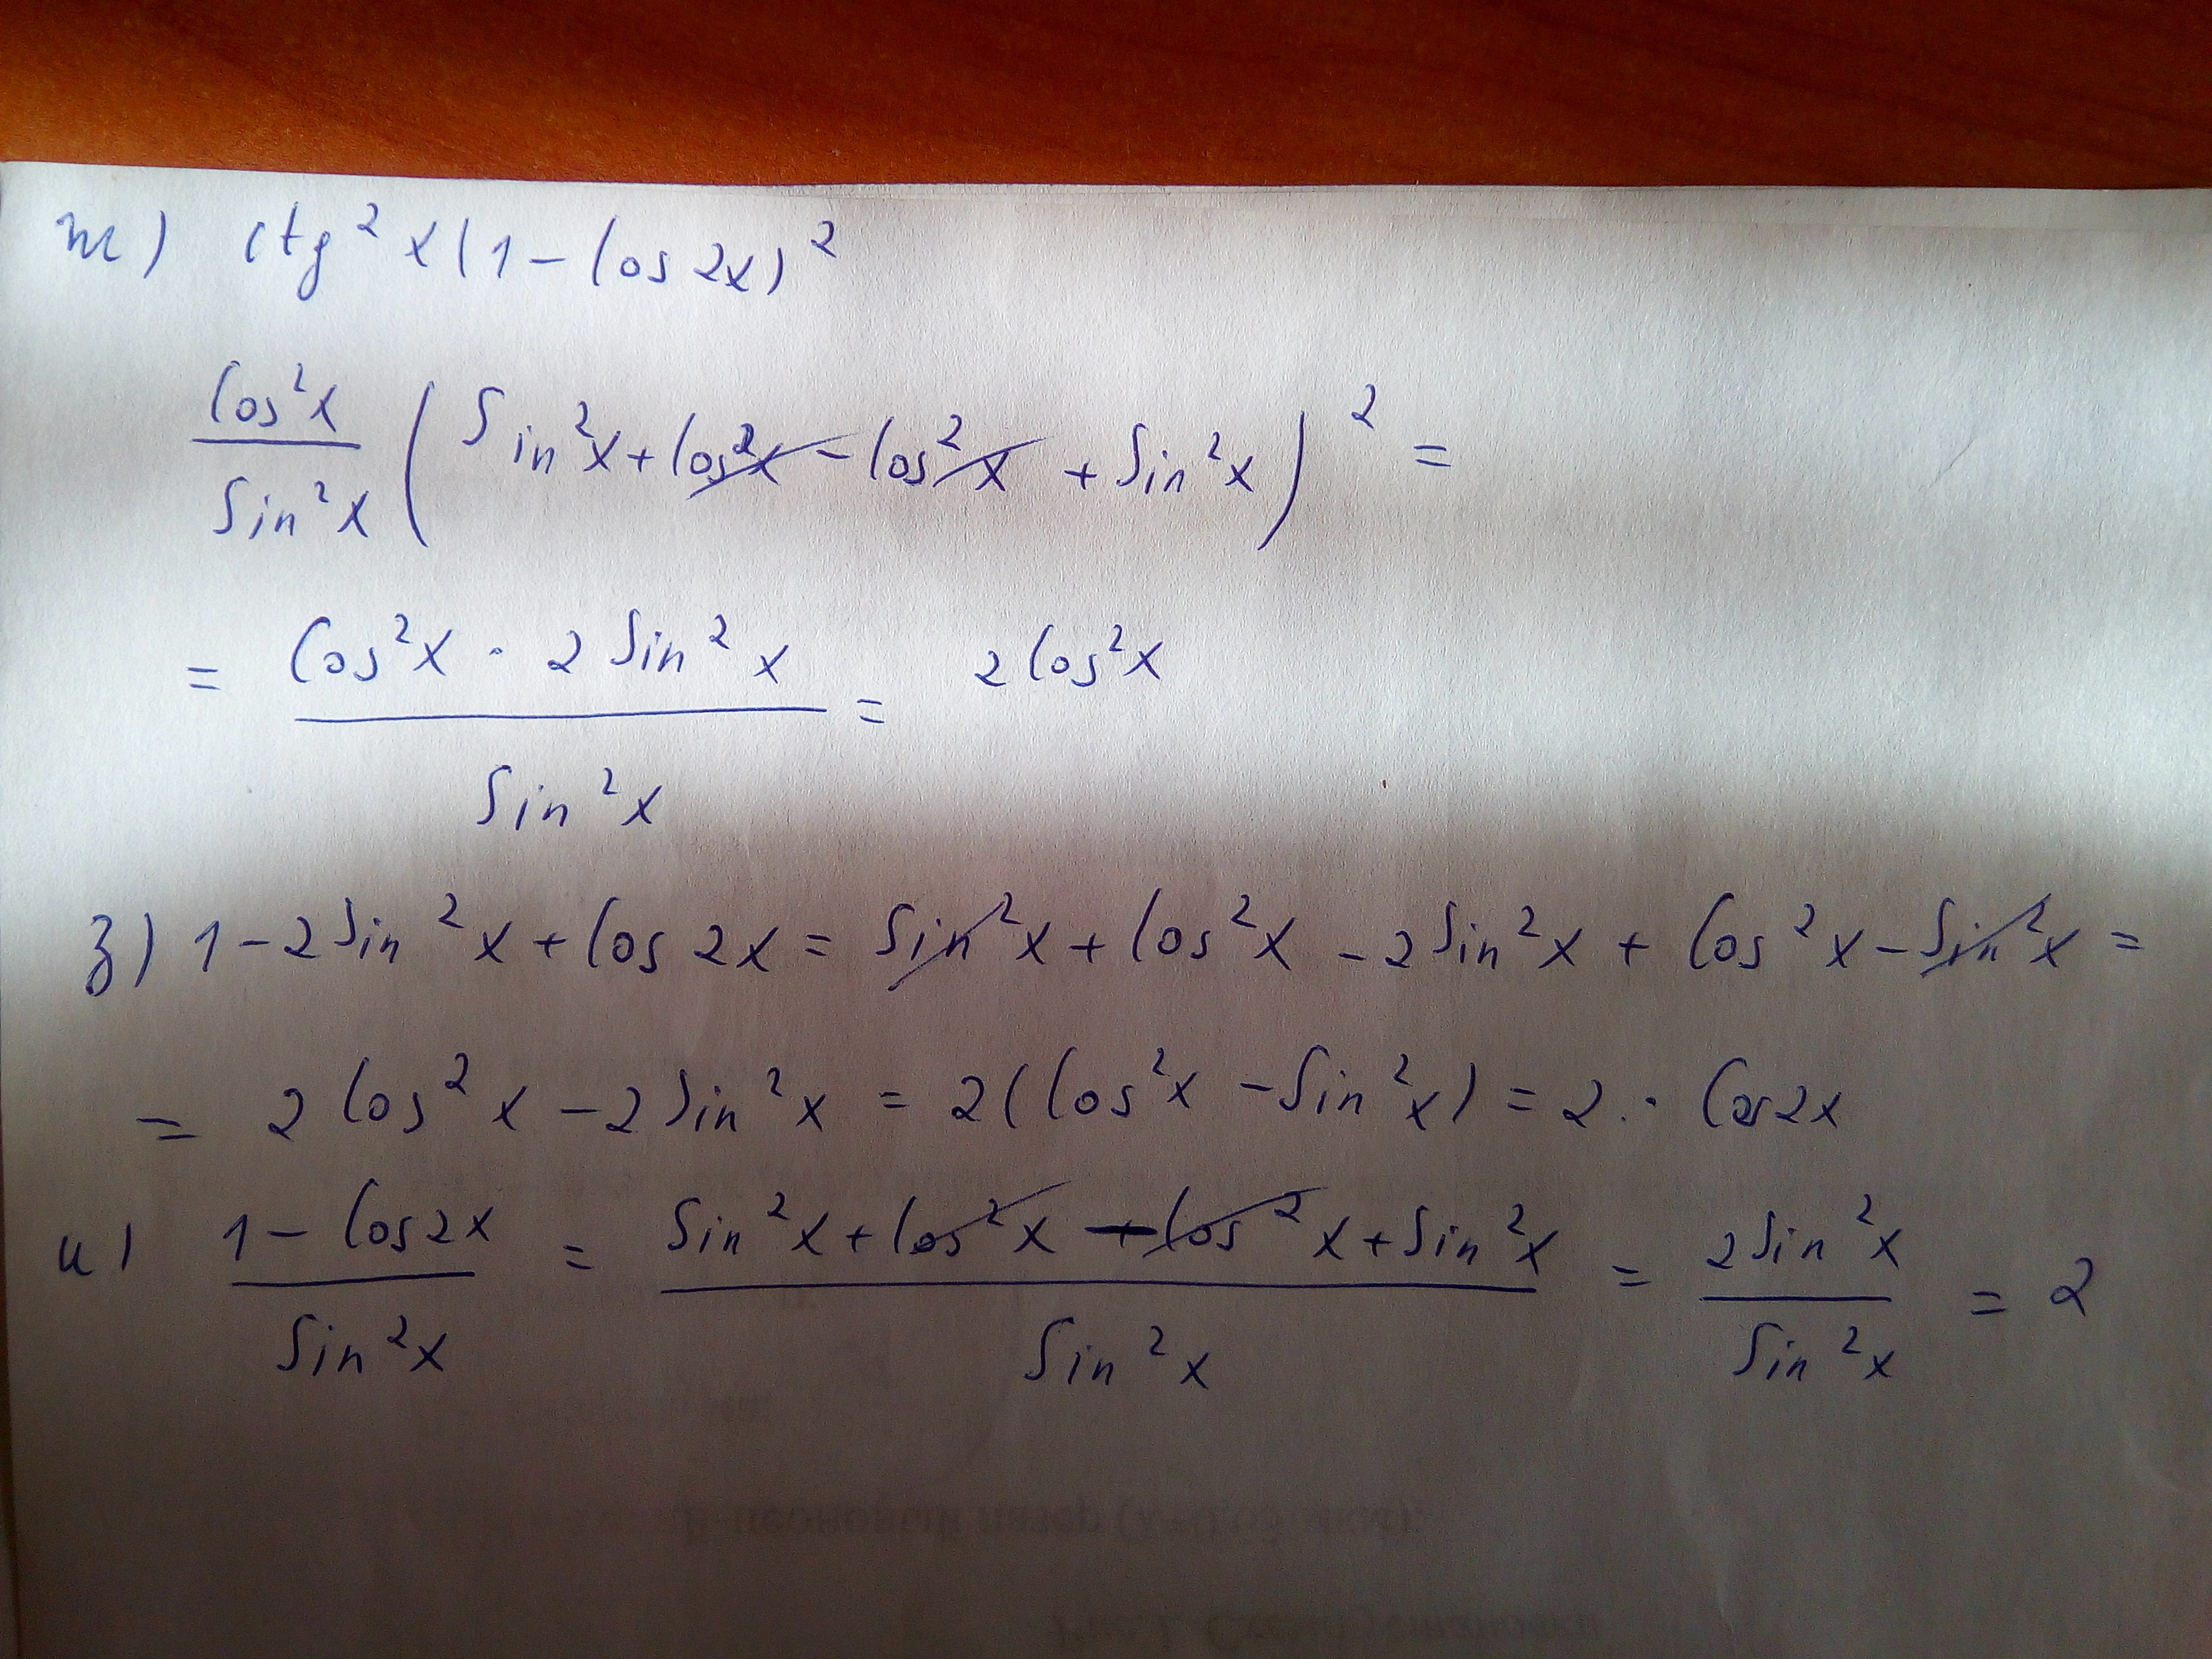 ж) ctg²x(1-cos2x)²
cos²x/sin²x (sin²x+cos²x-cos²x+sin²x)² =
= cos²x · 2sin²x/sin²x = 2cos²x
з) 1-2sin²x+cos2x = sin²x+cos²x-2sin²x+cos²x-sin²x =
= 2cos²x-2sin²x = 2(cos²x-sin²x) = 2 · cos2x
и) 1-cos2x/sin²x = sin²x+cos²x-cos²x+sin²x/sin²x = 2sin²x/sin²x = 2